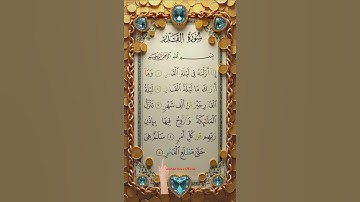 سُورَةُ الْقَدْرِ
بِسْمِ اللَّهِ الرَّحْمَٰنِ الرَّحِيمِ
أَنْزَلْنَاهُ فِي لَيْلَةِ الْقَدْرِ ١ وَمَا
أَدْرَاكَ مَا لَيْلَةُ الْقَدْرِ ٢ لَيْلَةُ
الْقَدْرِ خَيْرٌ مِنْ أَلْفِ شَهْرٍ ٣ تَنَزَّلُ
الْمَلَائِكَةُ وَالرُّوحُ فِيهَا بِإِذْنِ
رَبِّهِمْ مِنْ كُلِّ أَمْرٍ ٤ سَلَامٌ هِيَ
حَتَّى مَطْلَعِ الْفَجْرِ ٥